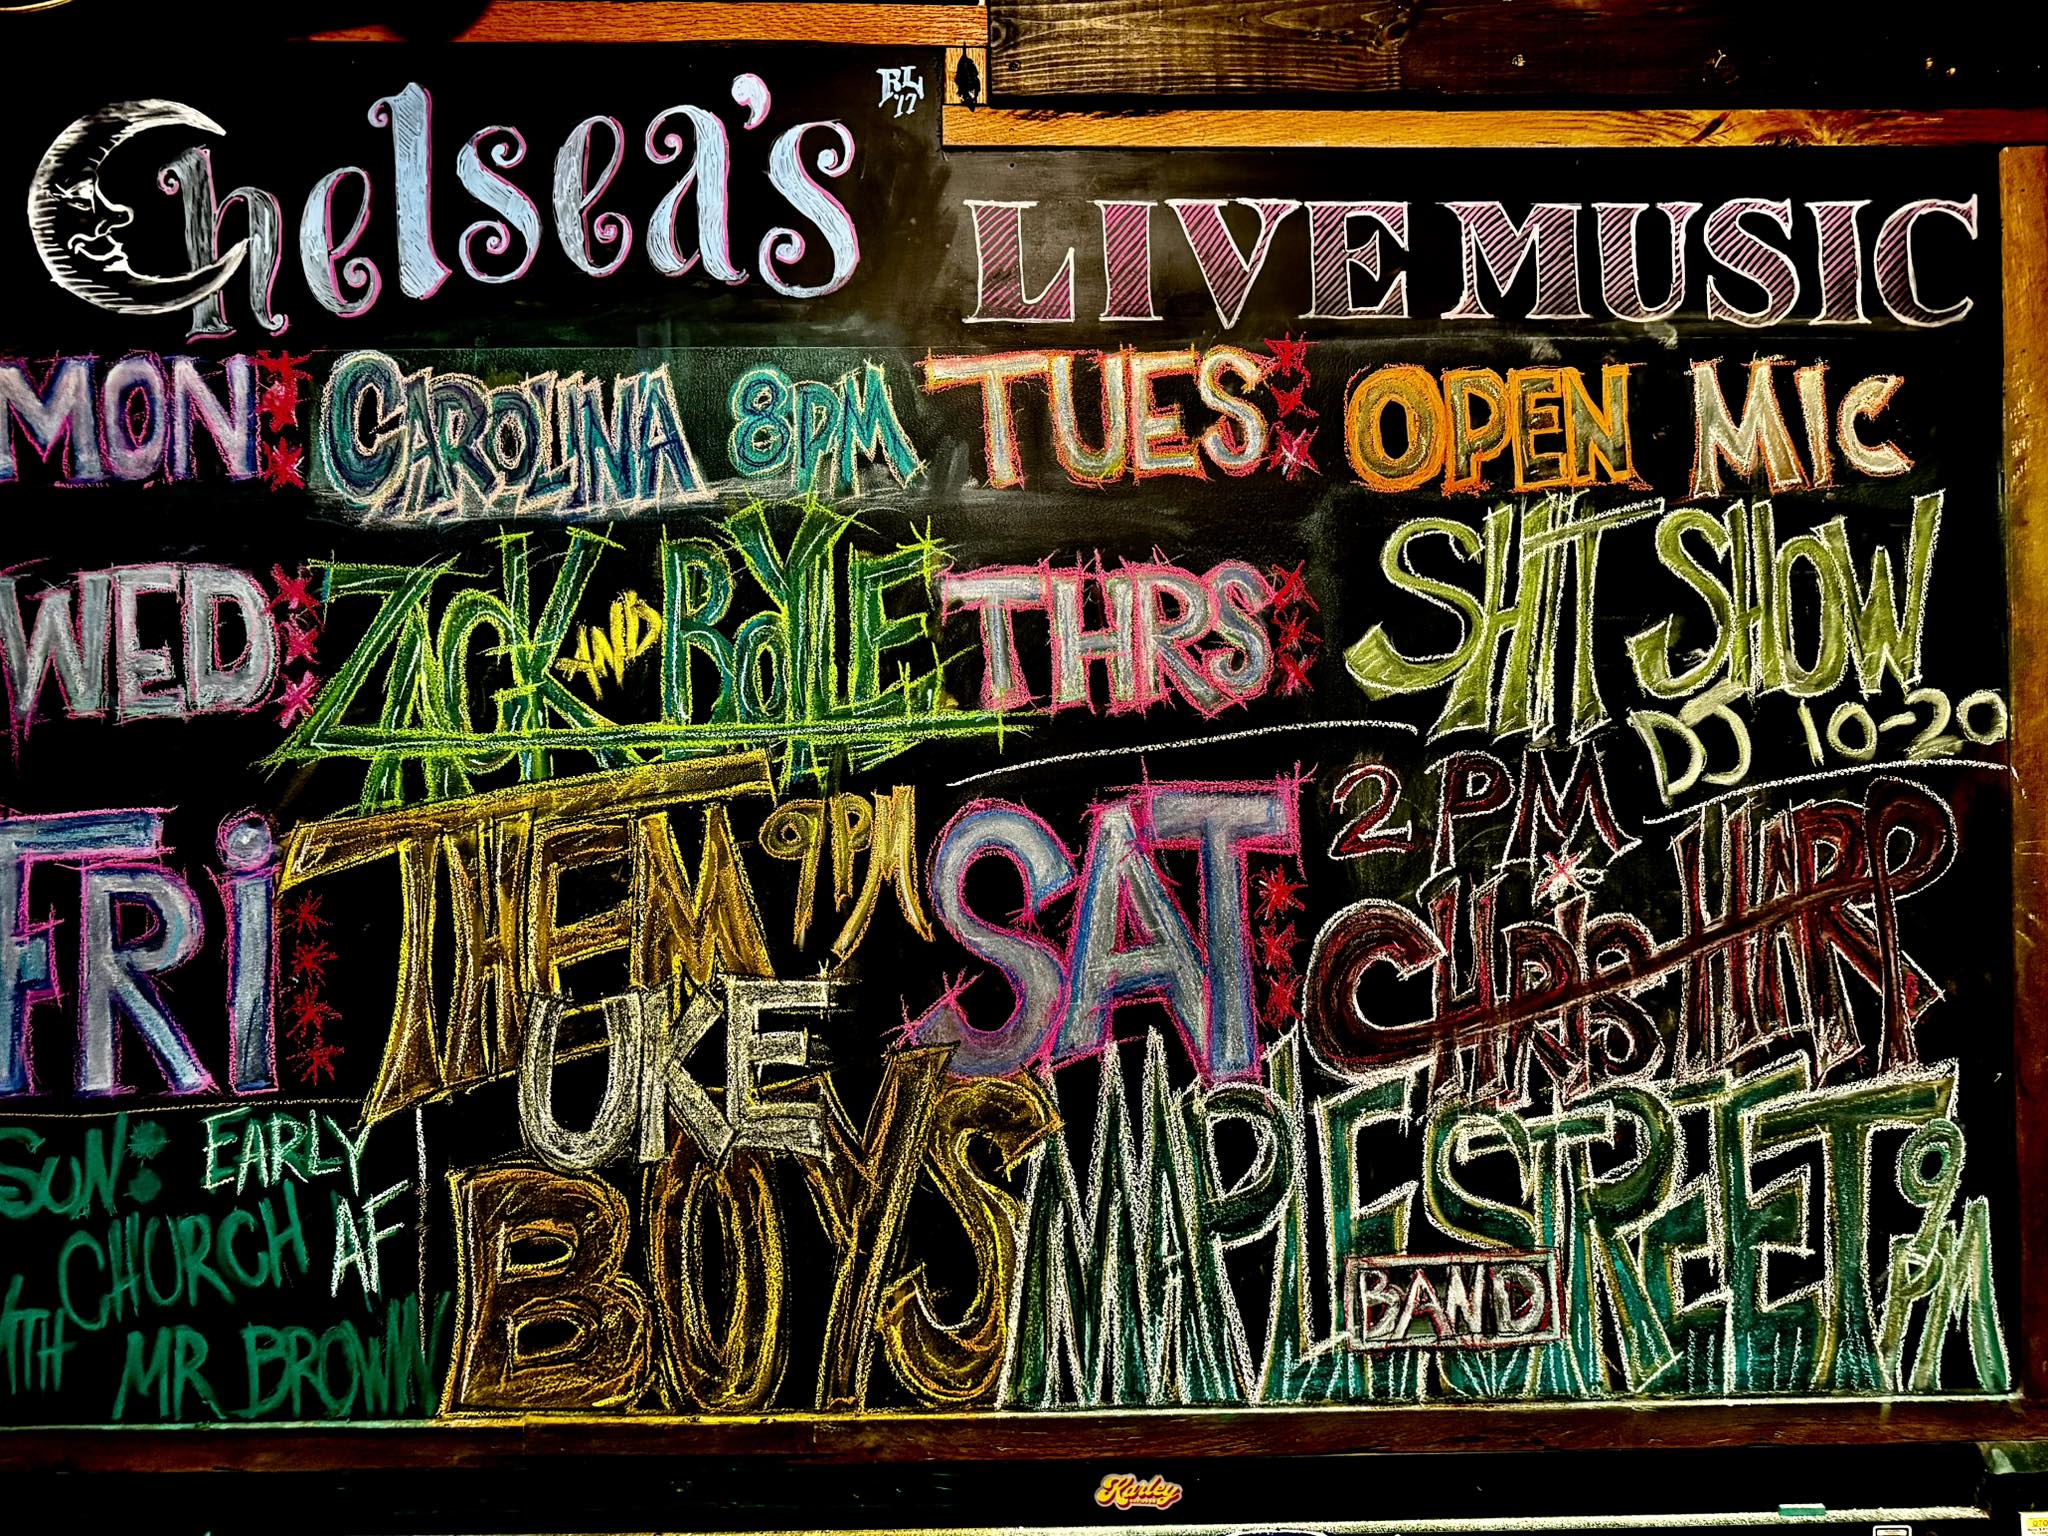 Chelsea's
RL '17
LIVE MUSIC
MON: CAROLINA 8PM
TUES: OPEN MIC
WED: ZACK AND BOYLE
THRS: SHIT SHOW
DJ 10-20
FRI: THEM 9PM
UKE
BOYS
SAT: 2PM
CHRIS HARP
MAPLE STREET 9PM
BAND
SUN: EARLY
CHURCH AF
WITH
MR BROWN
Karley